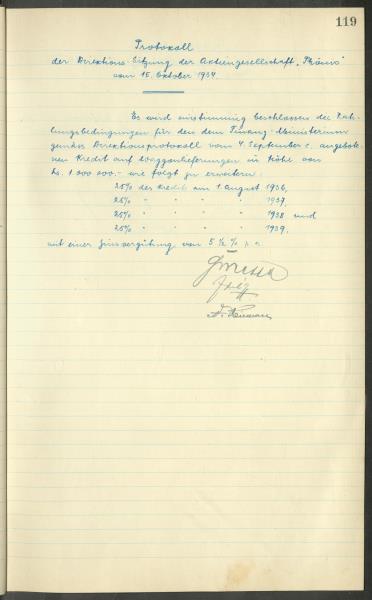 119
Protokoll
der Direktions-Sitzung der Aktiengesellschaft "Phönix"
vom 15. Oktober 1934
Es wird einstimmig beschlossen die Zah-
lungsbedingungen für den dem Finanz-Ministerium
gemäss Direktionsprotokoll vom 4. September c. angebote-
nen Kredit auf Waggonlieferungen in Höhe von
Ls. 1 000 000.- wie folgt zu erweitern:
25% des Kredits am 1. August 1936,
25% " " " " 1937,
25% " " " " 1938 und
25% " " " " 1939,
mit einer Zinsvergütung von 5 ½ % p. a.